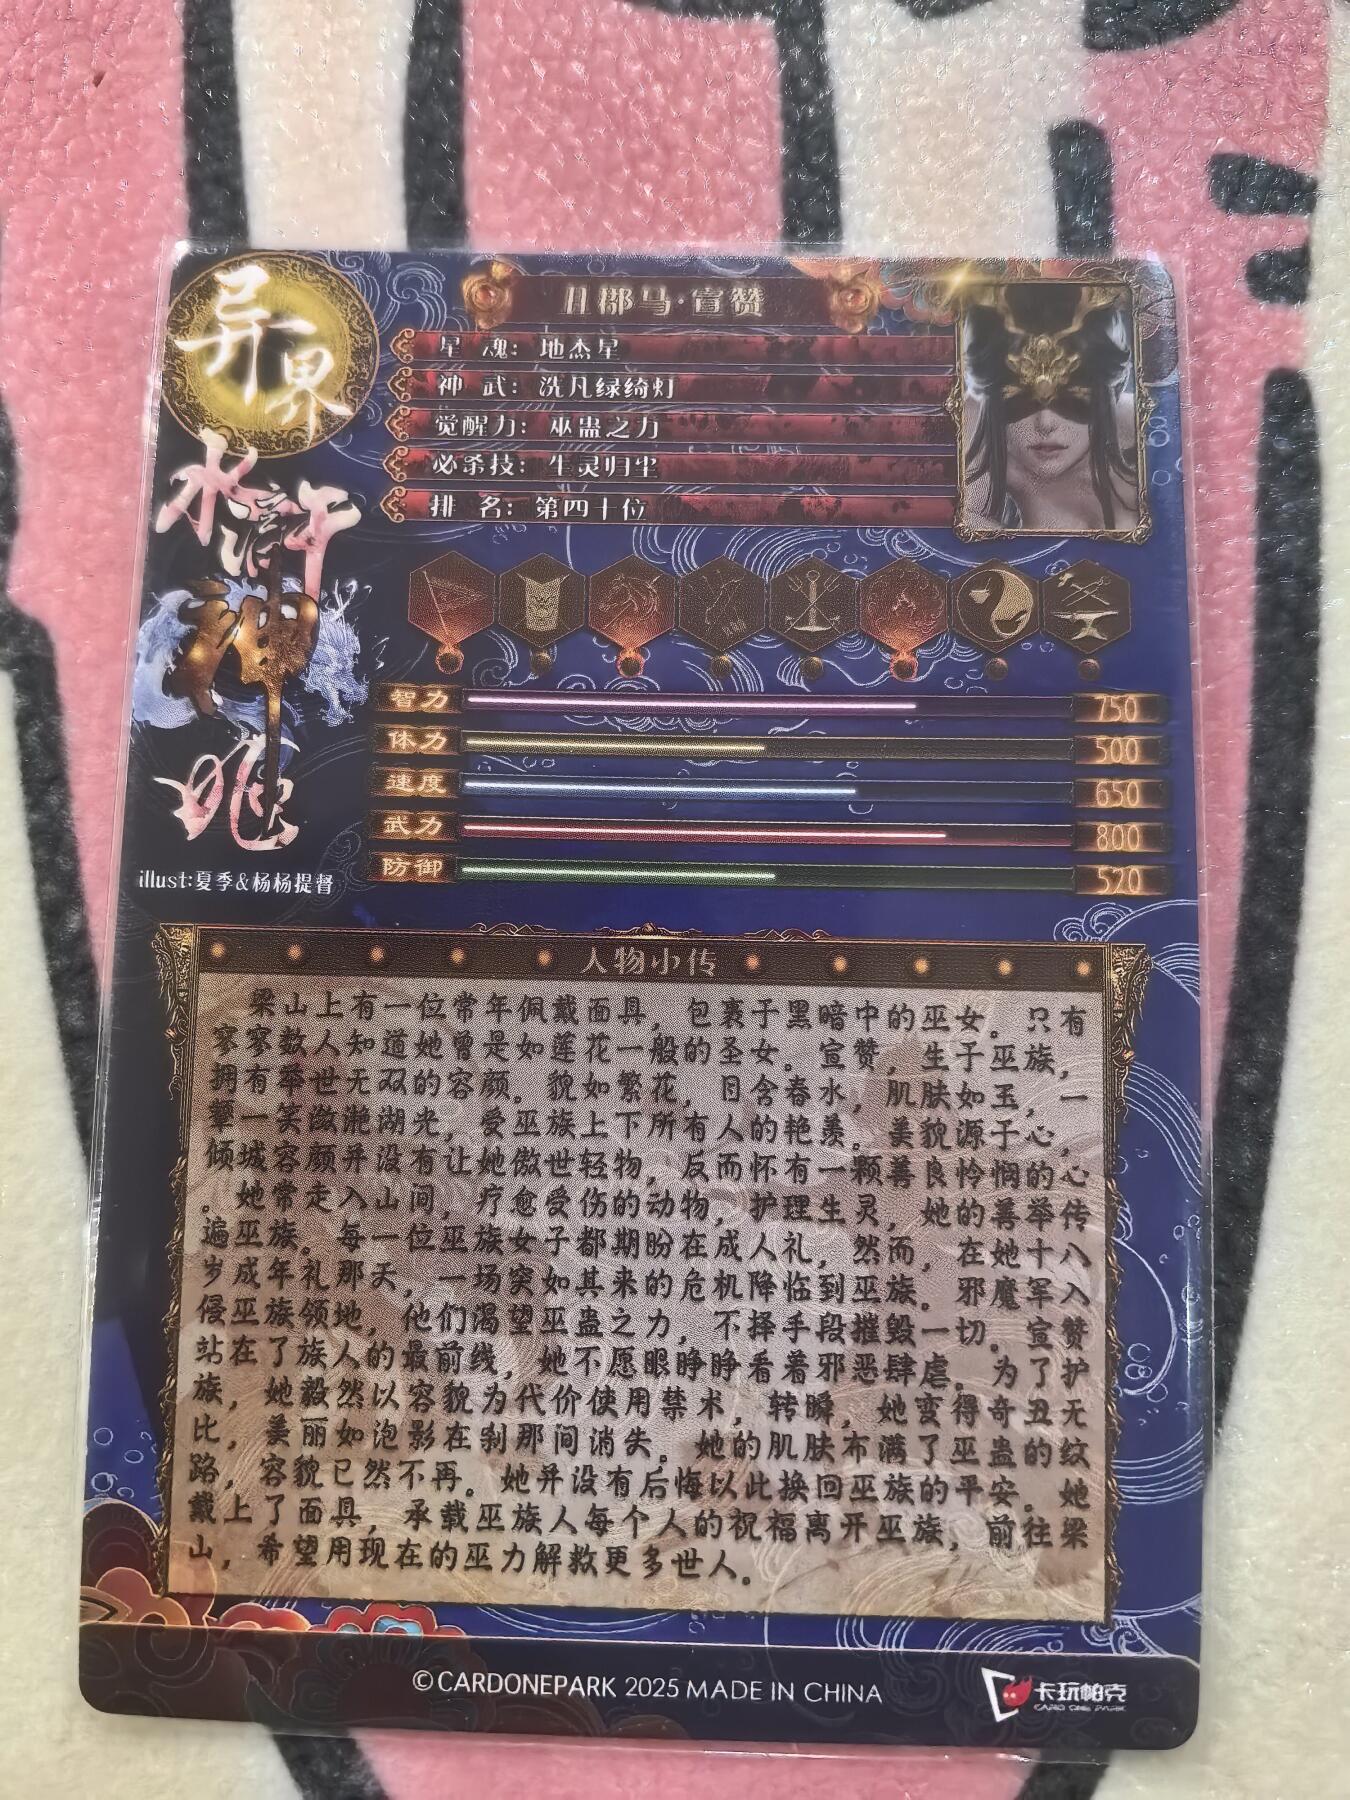 异界
水浒
神
姬
illust:夏季&杨杨提督
丑郡马·宣赞
星 魂：地杰星
神 武：洗凡绿绮灯
觉醒力：巫蛊之力
必杀技：生灵归尘
排 名：第四十位
智力 750
体力 500
速度 650
武力 800
防御 520
人物小传
梁山上有一位常年佩戴面具，包裹于黑暗中的巫女。只有
寥寥数人知道她曾是如莲花一般的圣女。宣赞，生于巫族，
拥有举世无双的容颜。貌如繁花，目含春水，肌肤如玉，一
颦一笑潋滟湖光，受巫族上下所有人的艳羡。美貌源于心，
倾城容颜并没有让她傲世轻物，反而怀有一颗善良怜悯的心
。她常走入山间，疗愈受伤的动物，护理生灵，她的善举传
遍巫族。每一位巫族女子都期盼在成人礼，然而，在她十八
岁成年礼那天，一场突如其来的危机降临到巫族。邪魔军入
侵巫族领地，他们渴望巫蛊之力，不择手段摧毁一切。宣赞
站在了族人的最前线，她不愿眼睁睁看着邪恶肆虐。为了护
族，她毅然以容貌为代价使用禁术，转瞬，她变得奇丑无
比，美丽如泡影在刹那间消失。她的肌肤布满了巫蛊的纹
路，容貌已然不再。她并没有后悔以此换回巫族的平安。她
戴上了面具，承载巫族人每个人的祝福离开巫族，前往梁
山，希望用现在的巫力解救更多世人。
©CARDONEPARK 2025 MADE IN CHINA
卡玩帕克
CARD ONE PARK